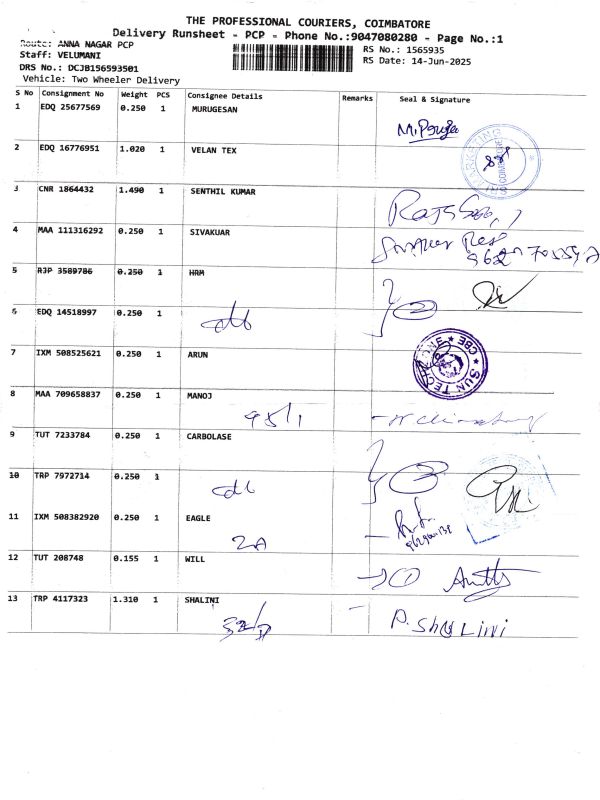 THE PROFESSIONAL COURIERS, COIMBATORE
Delivery Runsheet - PCP - Phone No.:9047080280 - Page No.:1
Route: ANNA NAGAR PCP
RS No.: 1565935
Staff: VELUMANI
RS Date: 14-Jun-2025
DRS No.: DCJB156593501
Vehicle: Two Wheeler Delivery
S No Consignment No Weight PCS Consignee Details Remarks Seal & Signature
1 EDQ 25677569 0.250 1 MURUGESAN
2 EDQ 16776951 1.020 1 VELAN TEX
3 CNR 1864432 1.490 1 SENTHIL KUMAR
4 MAA 111316292 0.250 1 SIVAKUAR
5 RJP 3589786 0.250 1 HRM
6 EDQ 14518997 0.250 1
7 IXM 508525621 0.250 1 ARUN
SUN TECH ZONE ★ CBE ★
8 MAA 709658837 0.250 1 MANOJ
95/1
9 TUT 7233784 0.250 1 CARBOLASE
10 TRP 7972714 0.250 1
11 IXM 508382920 0.250 1 EAGLE
2A
12 TUT 208748 0.155 1 WILL
13 TRP 4117323 1.310 1 SHALINI
P. ShaLini